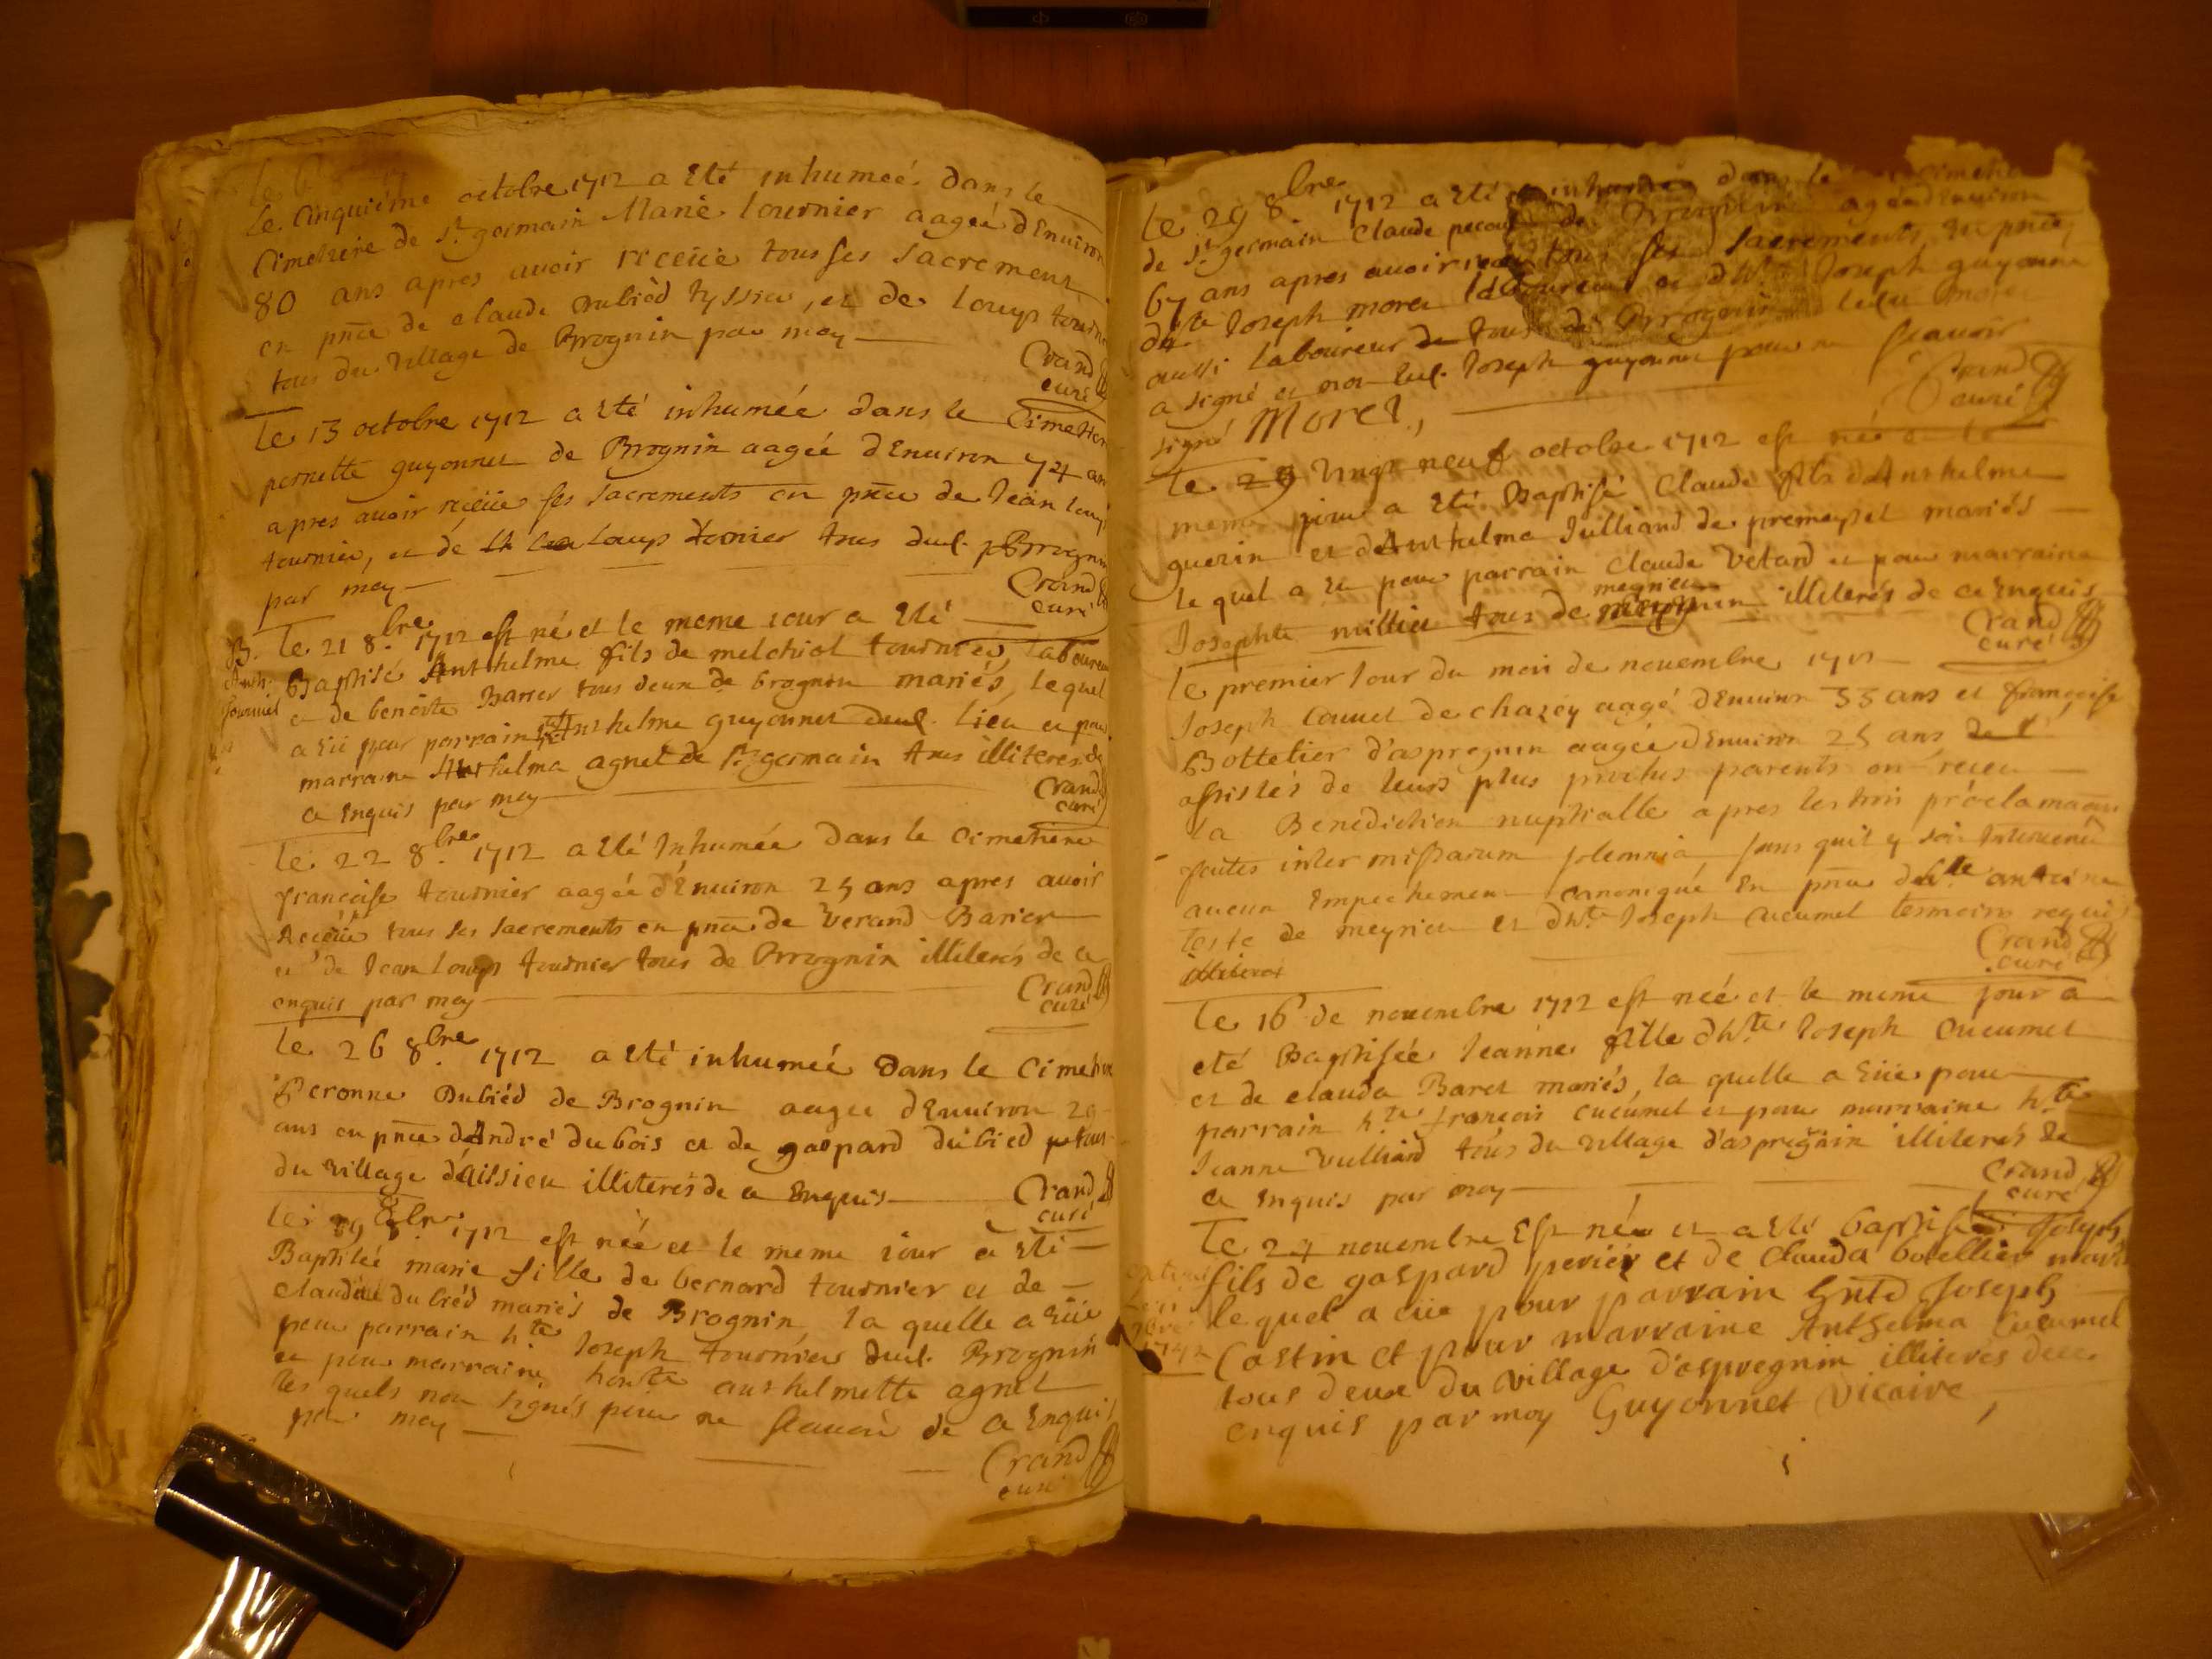 Le Cinquième octobre 1712 a Eté inhumeé dans le
Cimetiere de St germain Marie tournier aageé dEnuiron
80 ans apres auoir receüe tous ses sacrement
en pnce de claude dubiéd tyssier, et de loup tournier
tous du village de Brognin par moy
Crand
curé
Le 13 octobre 1712 a Eté inhumée dans le Cimetiere
pernette guyonnet de Brognin aagée dEnuiron 74 ans
apres auoir receüe ses sacrements en pnce de Jean loup
tournier, et dé loup tornier tous dud. Brognin
par moy
Crand
curé
B.
Anth.
tournier
Le 21 8.bre 1712 est né et le meme iour a Eté
Baptisé Anthelme fils de melchiol tournier, laboureur
et de benoite Barier tous deux de brognin mariés, lequel
a eüe pour parrain Anthelme guyonnet dud. lieu et pour
marraine Anthelma agnel de St germain tous illiteres de
ce Enquis par moy
Crand
curé
Le 22 8.bre 1712 a Eté Inhumée dans le cimetiere
francoise tournier aagée dEnuiron 25 ans apres auoir
receüe tous ses sacrements en pnce de Verand Barier
et de Jean loup tournier tous de Brognin illiterés de ce
enquis par moy
Crand
curé
Le 26 8.bre 1712 a Eté inhumeé dans le Cimetiere
Peronne Dubiéd de Brognin aagee dEnuiron 29
ans en pnce dAndré dubois et de gaspard dubied tous
du village déissieu illiterés de ce Enquis
Crand
curé
Le 29 8.bre 1712 est née et le meme iour a Eté
Baptiseé marie fille de bernard tournier et de
claudea dubiéd mariés de Brognin, la quelle a eüe
pour parrain hte Joseph tournier dud. Brognin
et pour marraine honte anthelmette agnel
les quels non signés pour ne scauoir de ce Enquis
par moy
Crand
curé
Le 29 8.bre 1712 a Eté inhumée dans le cimetiere
de St germain Claude de Brognin agée dEnuiron
67 ans apres auoir receu tous ses sacrements, en pnce
dhte Joseph morel laboureur et dhte Joseph guyonnet
aussi laboureur tous de Brognin lequ morel
a signé et non led. Joseph guyonnet pour ne scauoir
signé Morel,
Crand
curé
Le 29 Vingt neuf octobre 1712 est née et le
meme jour a Eté Baptisé Claude fils dAnthelme
guerin et dAnthelma Julliand de premeysel mariés
le quel a eu pour parrain Claude Vetard et pour marraine
megnieu
Josephte millieu tous de illiterés de ce Enquis
Crand
curé
Le premier iour du moi de nouembre 1712
Joseph Couuet de chazey aagé dEnuiron 35 ans et françoise
Bottelier d'aspregnin aagée dEnuiron 25 ans
assistés de leurs plus proches parents on receu
la Benediction nuptialle apres les troi proclamaons
faites inter missarum solemnia, sans quil y soit Interuenu
aucun Empechement canonique En pnce dhte antoine
teste de meyrieu et dhte Joseph Cucumel temoins requis
illiterés
Crand
curé
Le 16 de nouembre 1712 est née et le meme jour a
eté Baptisée Jeanne fille dhte Joseph Cucumel
et de clauda Baret mariés, la quelle a Eüe pour
parrain hte françois cucumel et pour marraine hte
Jeanne Vulliard tous du village d'aspregnin illiterés de
ce Enquis par moy
Crand
curé
Le 24 nouembre Est née et a Eté baptisé Joseph
fils de gaspard perier et de Clauda botellier mariés
le quel a eüe pour parrain Joseph
Costin et pour marraine Anthelma Cucumel
tous deux du village d'aspregnin illiterés de ce
enquis par moy Guyonnet Vicaire,